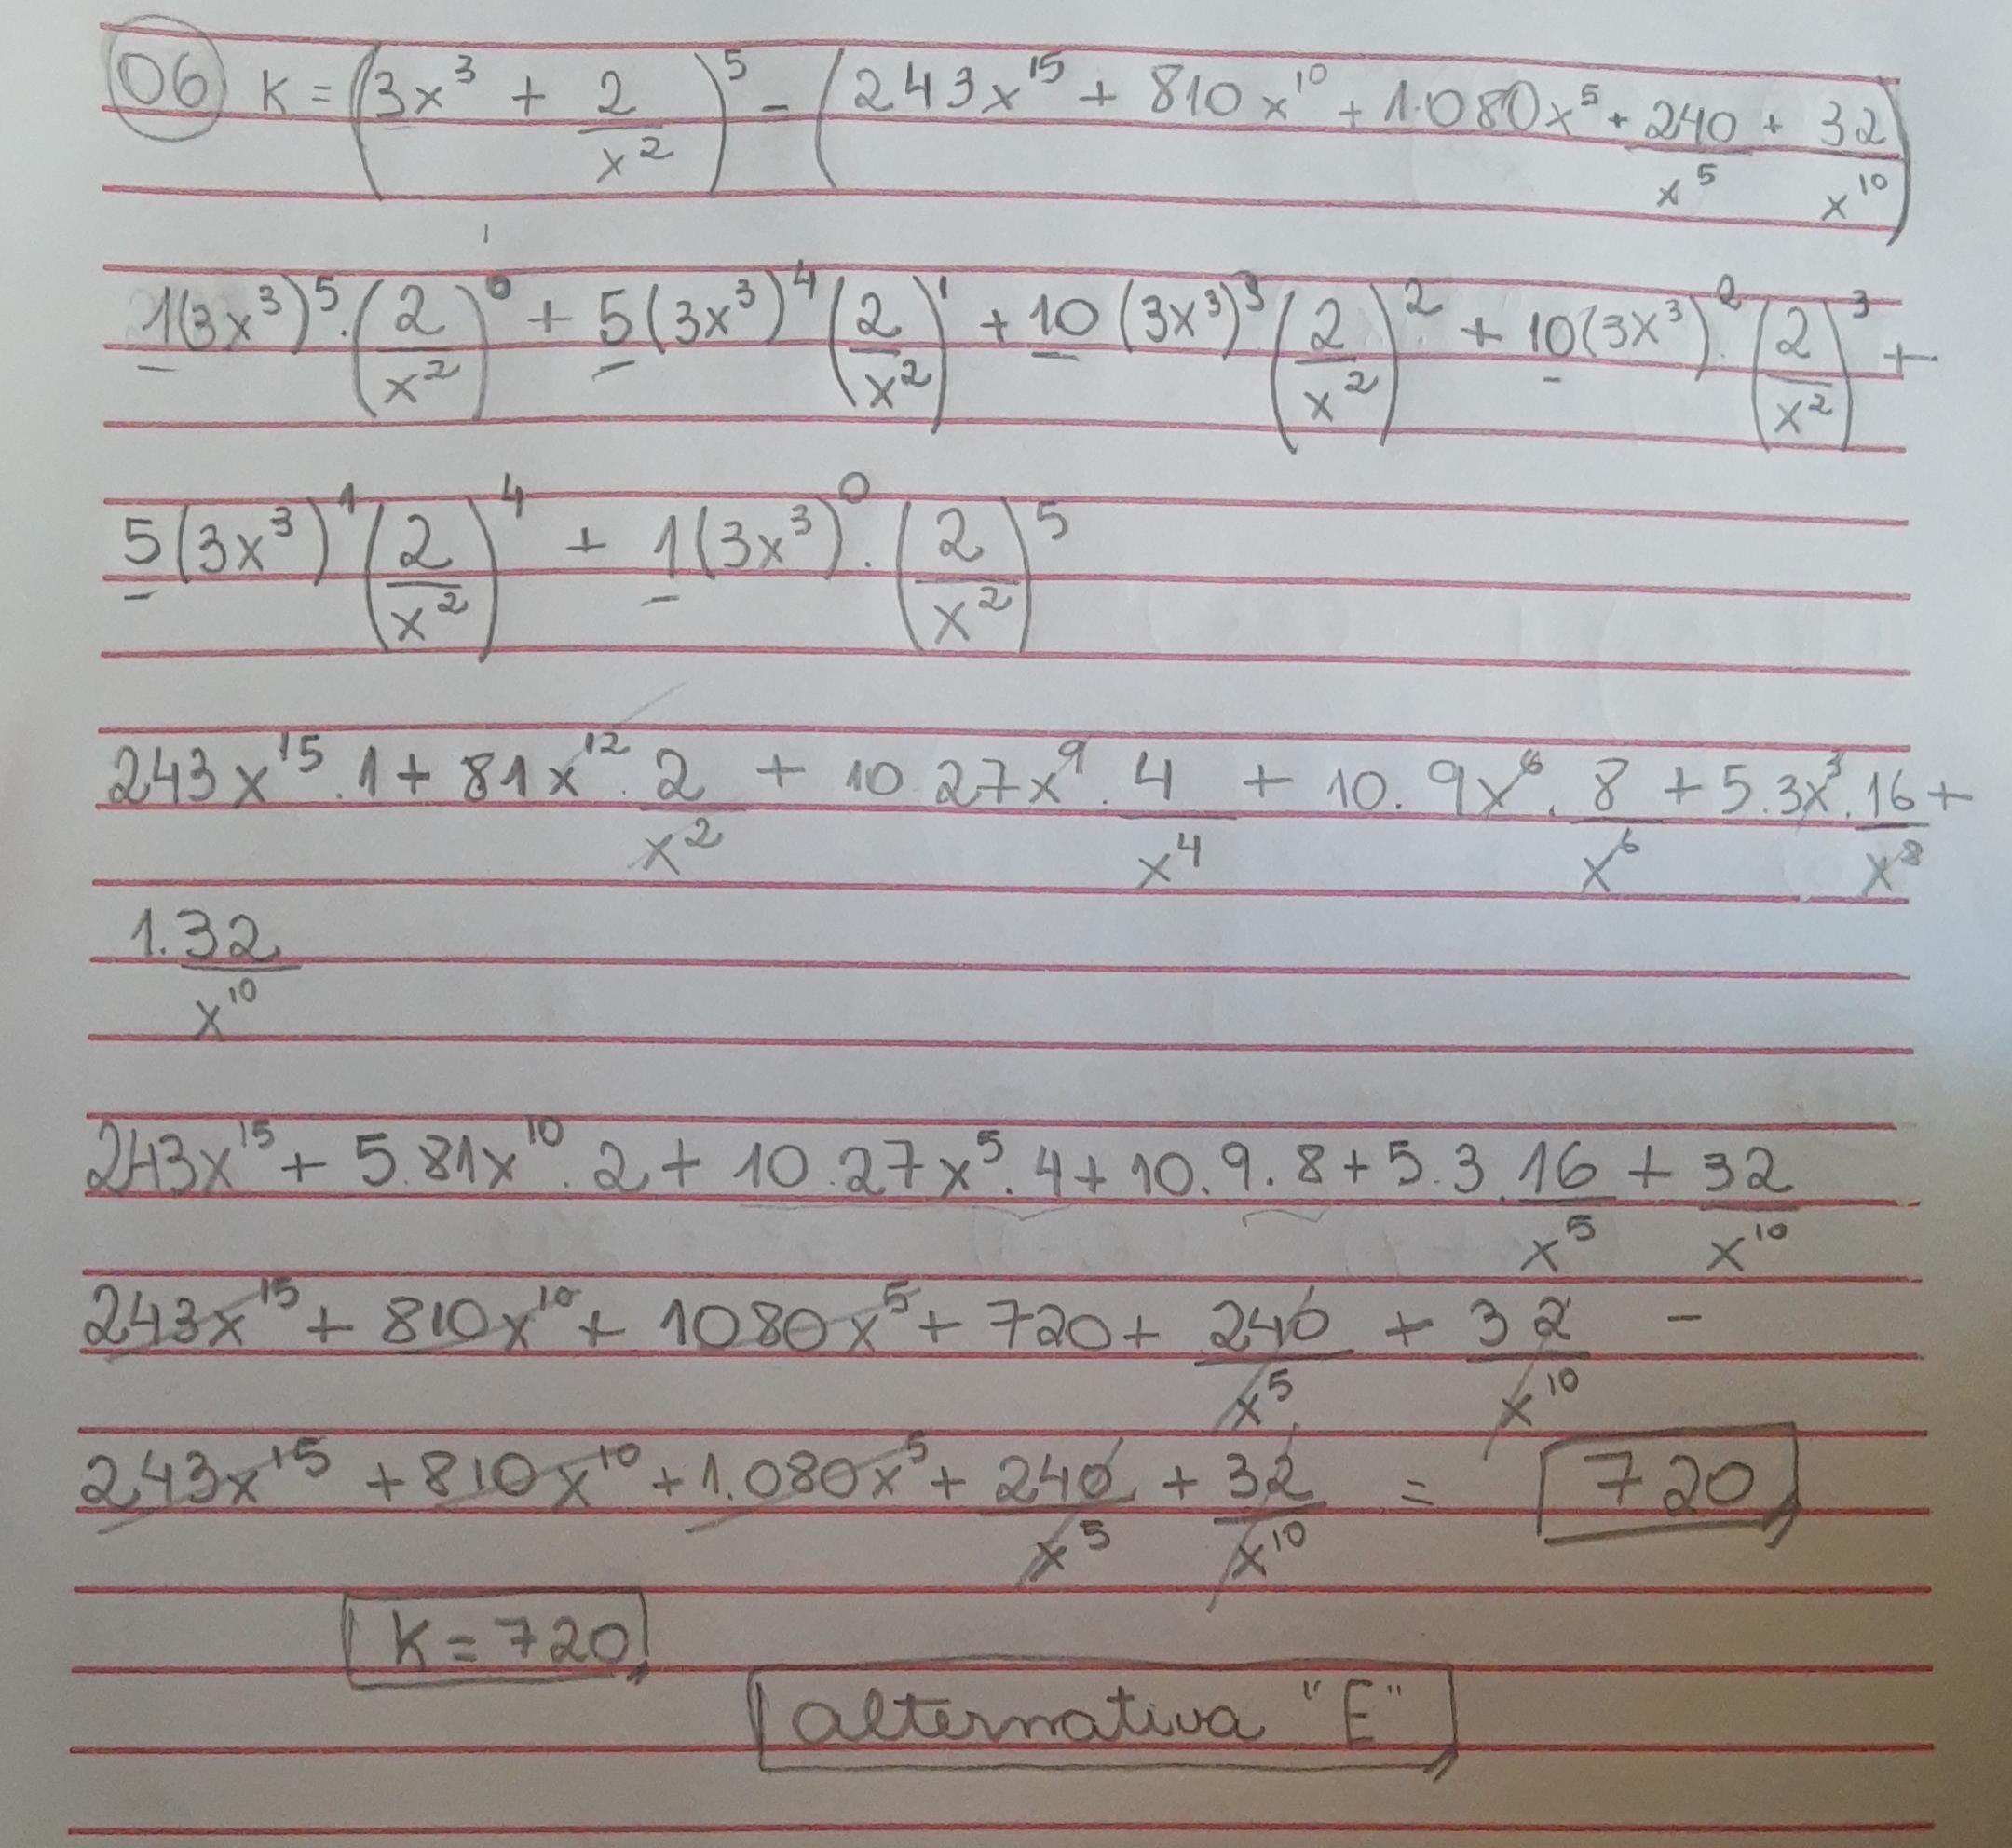 06 K = (3x³ + 2/x²)⁵ - (243x¹⁵ + 810x¹⁰ + 1.080x⁵ + 240/x⁵ + 32/x¹⁰)
1(3x³)⁵.(2/x²)⁰ + 5(3x³)⁴(2/x²)¹ + 10(3x³)³(2/x²)² + 10(3x³)².(2/x²)³ +
5(3x³)¹(2/x²)⁴ + 1(3x³)⁰.(2/x²)⁵
243x¹⁵.1 + 81x¹².2/x² + 10.27x⁹.4/x⁴ + 10.9x⁶.8/x⁶ + 5.3x³.16/x⁸ +
1.32/x¹⁰
243x¹⁵ + 5.81x¹⁰.2 + 10.27x⁵.4 + 10.9.8 + 5.3.16/x⁵ + 32/x¹⁰
243x¹⁵ + 810x¹⁰ + 1080x⁵ + 720 + 240/x⁵ + 32/x¹⁰ -
243x¹⁵ + 810x¹⁰ + 1.080x⁵ + 240/x⁵ + 32/x¹⁰ = 720
K = 720
alternativa "E"